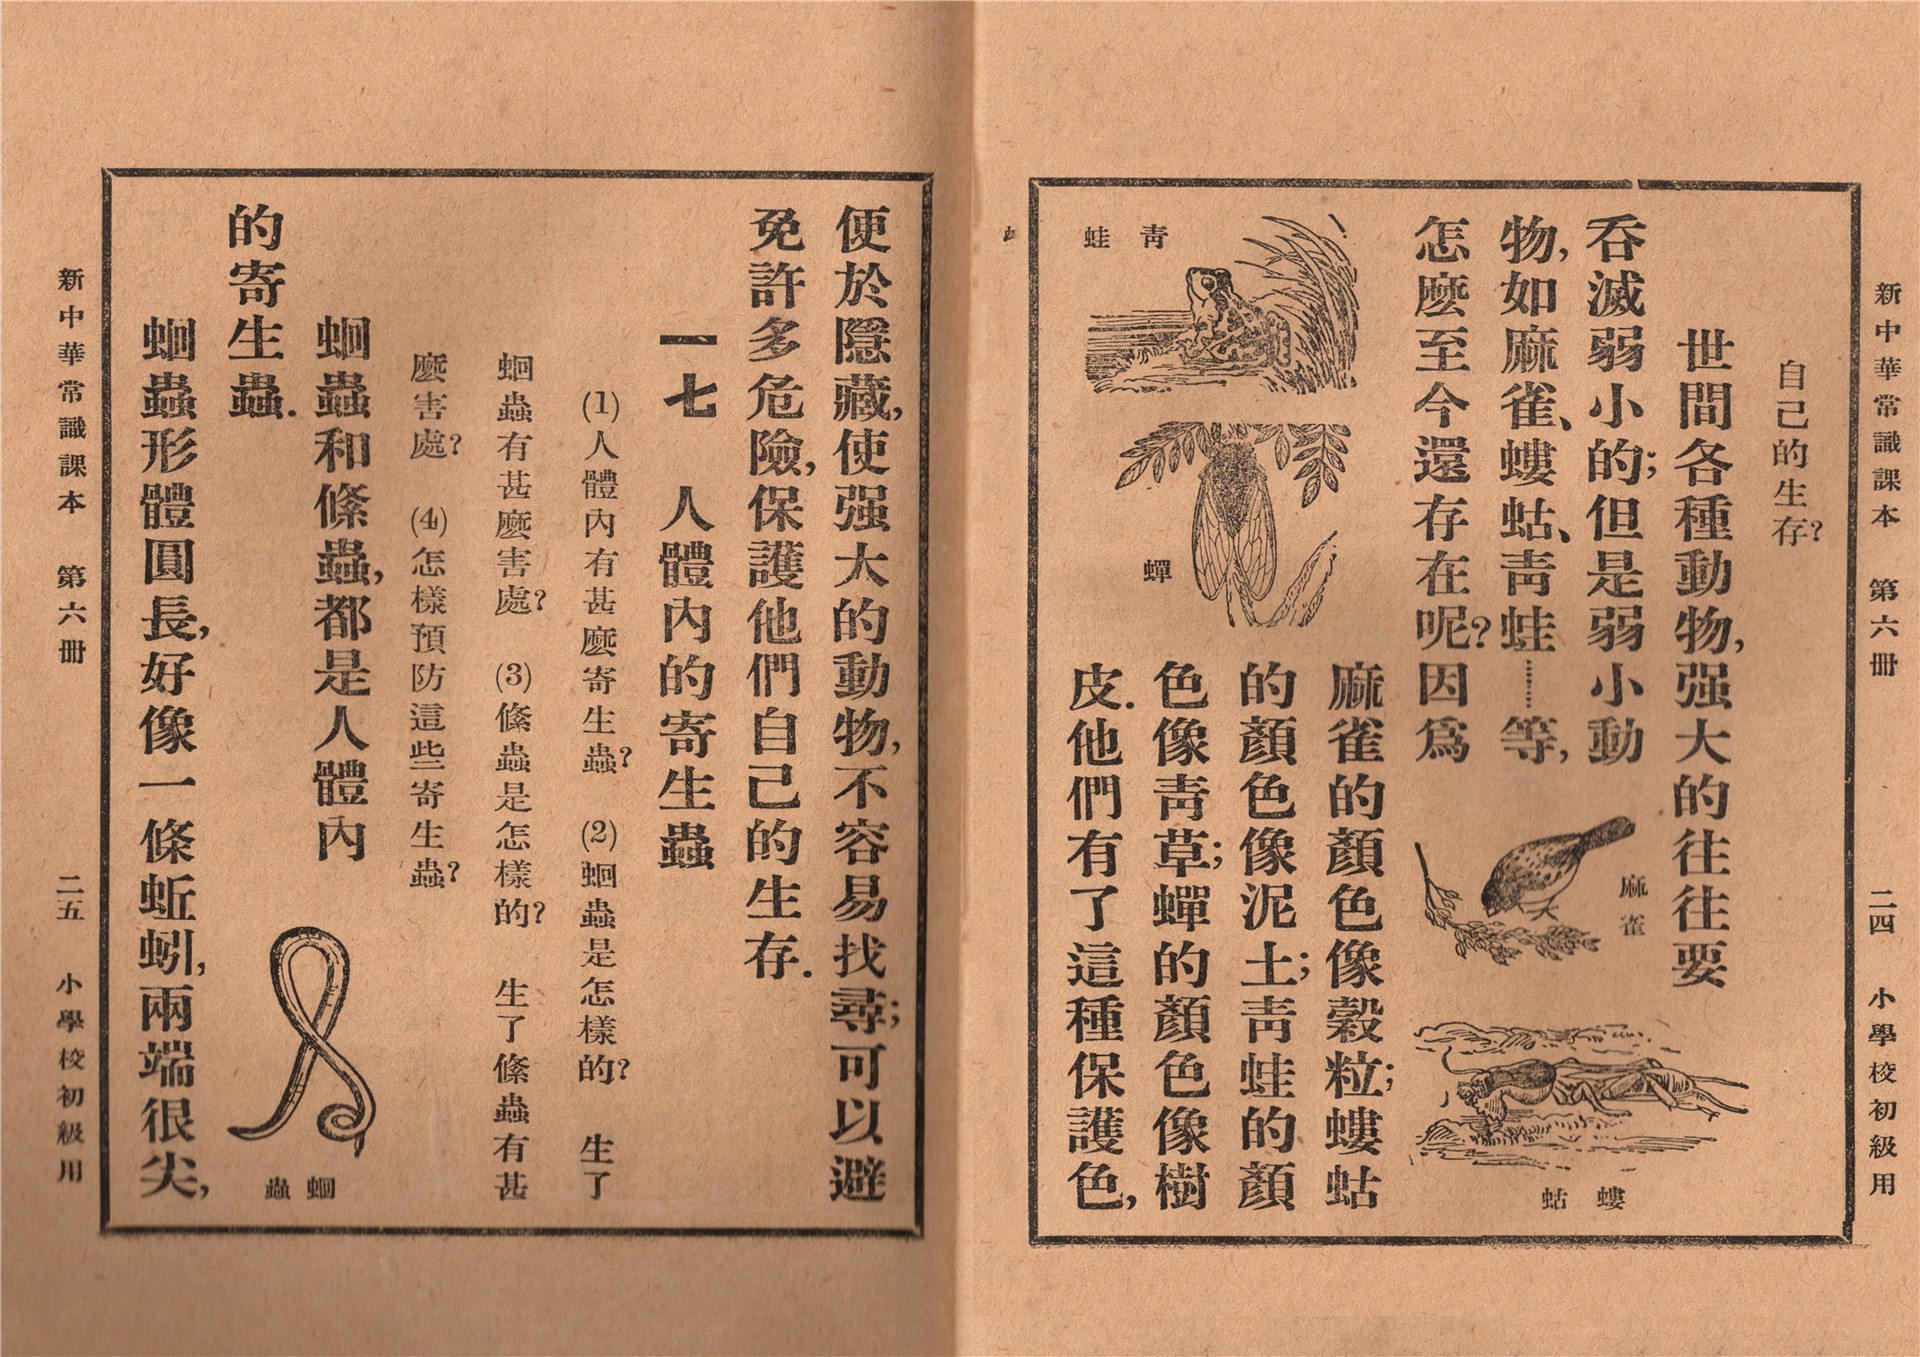 新中華常識課本　第六冊　二四　小學校初級用
自己的生存?
世間各種動物,强大的往往要
吞滅弱小的;但是弱小動
物,如麻雀、螻蛄、靑蛙……等,
怎麽至今還存在呢?因爲
麻雀
螻蛄
靑蛙
蟬
麻雀的顏色像穀粒;螻蛄
的顏色像泥土;靑蛙的顏
色像靑草;蟬的顏色像樹
皮.他們有了這種保護色,
便於隱藏,使强大的動物,不容易找尋;可以避
免許多危險,保護他們自己的生存.
一七　人體內的寄生蟲
(1)人體內有甚麽寄生蟲?　(2)蛔蟲是怎樣的?　生了
蛔蟲有甚麽害處?　(3)絛蟲是怎樣的?　生了絛蟲有甚
麽害處?　(4)怎樣預防這些寄生蟲?
蛔蟲和絛蟲,都是人體內
的寄生蟲.
蛔蟲
蛔蟲形體圓長,好像一條蚯蚓,兩端很尖,
新中華常識課本　第六冊　二五　小學校初級用